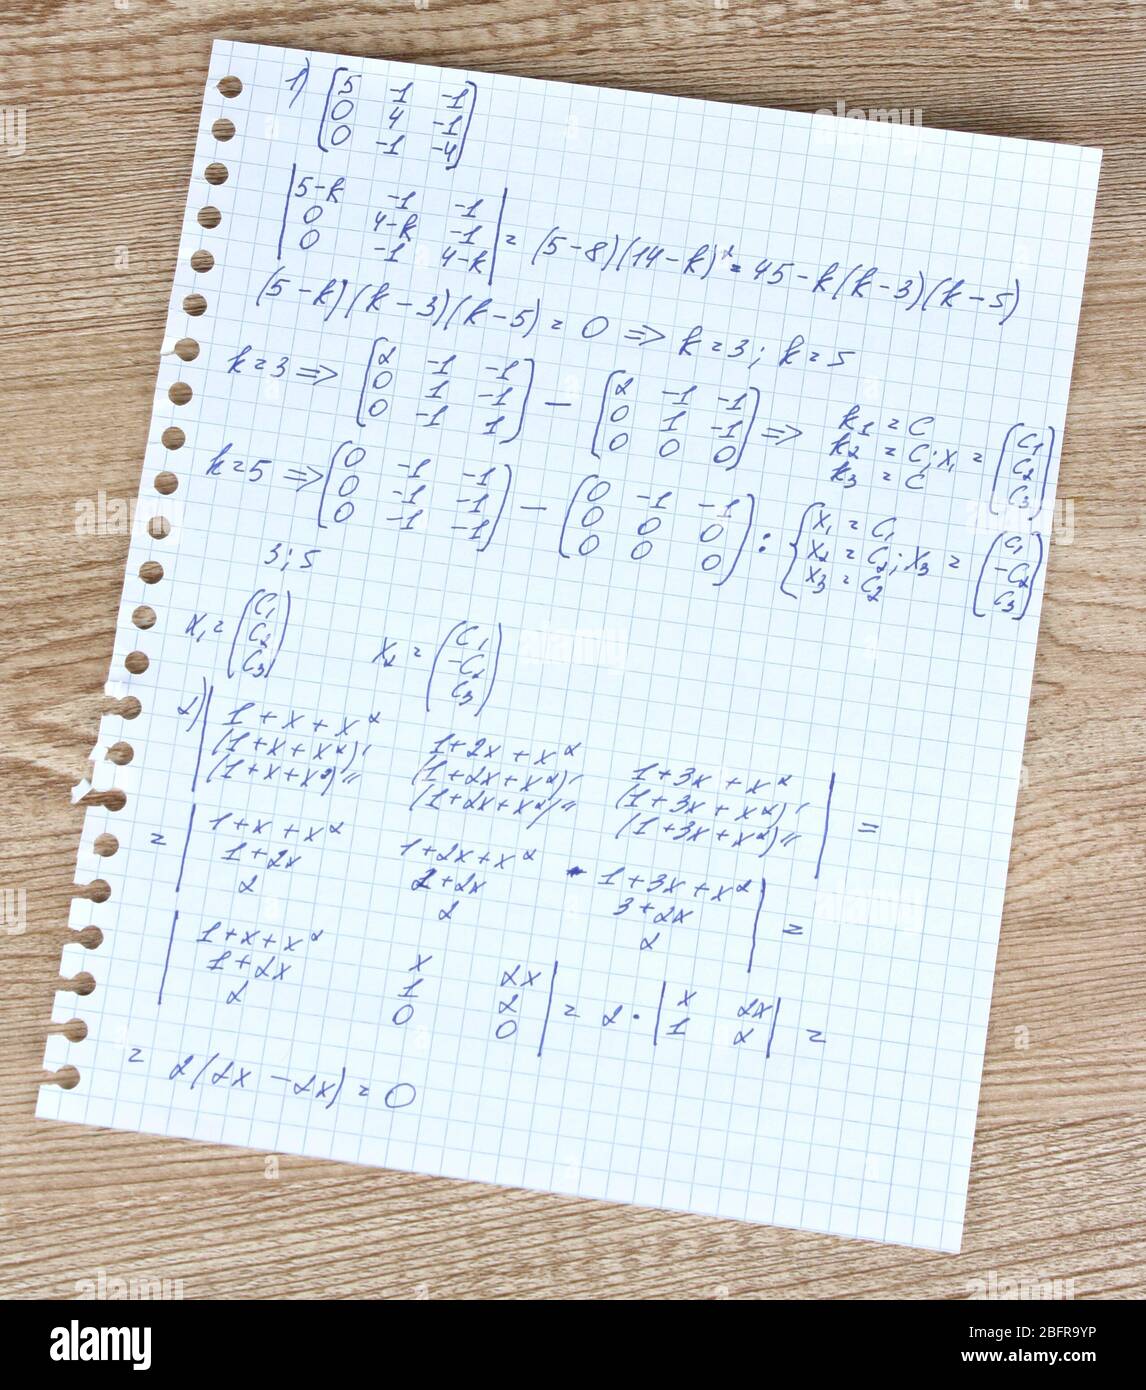 1) (5 -1 -1
0 4 -1
0 -1 -4)
|5-k -1 -1
0 4-k -1
0 -1 4-k| = (5-8)(14-k)² = 45-k(k-3)(k-5)
(5-k)(k-3)(k-5) = 0 => k=3; k=5
k=3 => (2 -1 -1
0 1 -1
0 -1 1) — (2 -1 -1
0 1 -1
0 0 0) => k₁ = C
k₂ = C; x₁ = (C₁
k₃ = C C₂
C₃)
k=5 => (0 -1 -1
0 -1 -1
0 -1 -1) — (0 -1 -1
0 0 0
0 0 0) : {x₁ = C₁
x₂ = C₂; x₃ = (C₁
x₃ = C₂ -C₂
C₃)
3; 5
x₁ = (C₁
C₂
C₃) x₂ = (C₁
-C₂
C₃)
2) |1+x+x² 1+2x+x² 1+3x+x²
(1+x+x²)' (1+2x+x²)' (1+3x+x²)'
(1+x+x²)'' (1+2x+x²)'' (1+3x+x²)''| =
= |1+x+x² 1+2x+x² 1+3x+x²
1+2x 2+2x 3+2x
2 2 2| =
|1+x+x² x 2x
1+2x 1 2
2 0 0| = 2 · |x 2x
1 2| =
= 2(2x - 2x) = 0
alamy
Image ID: 2BFR9YP
www.alamy.com